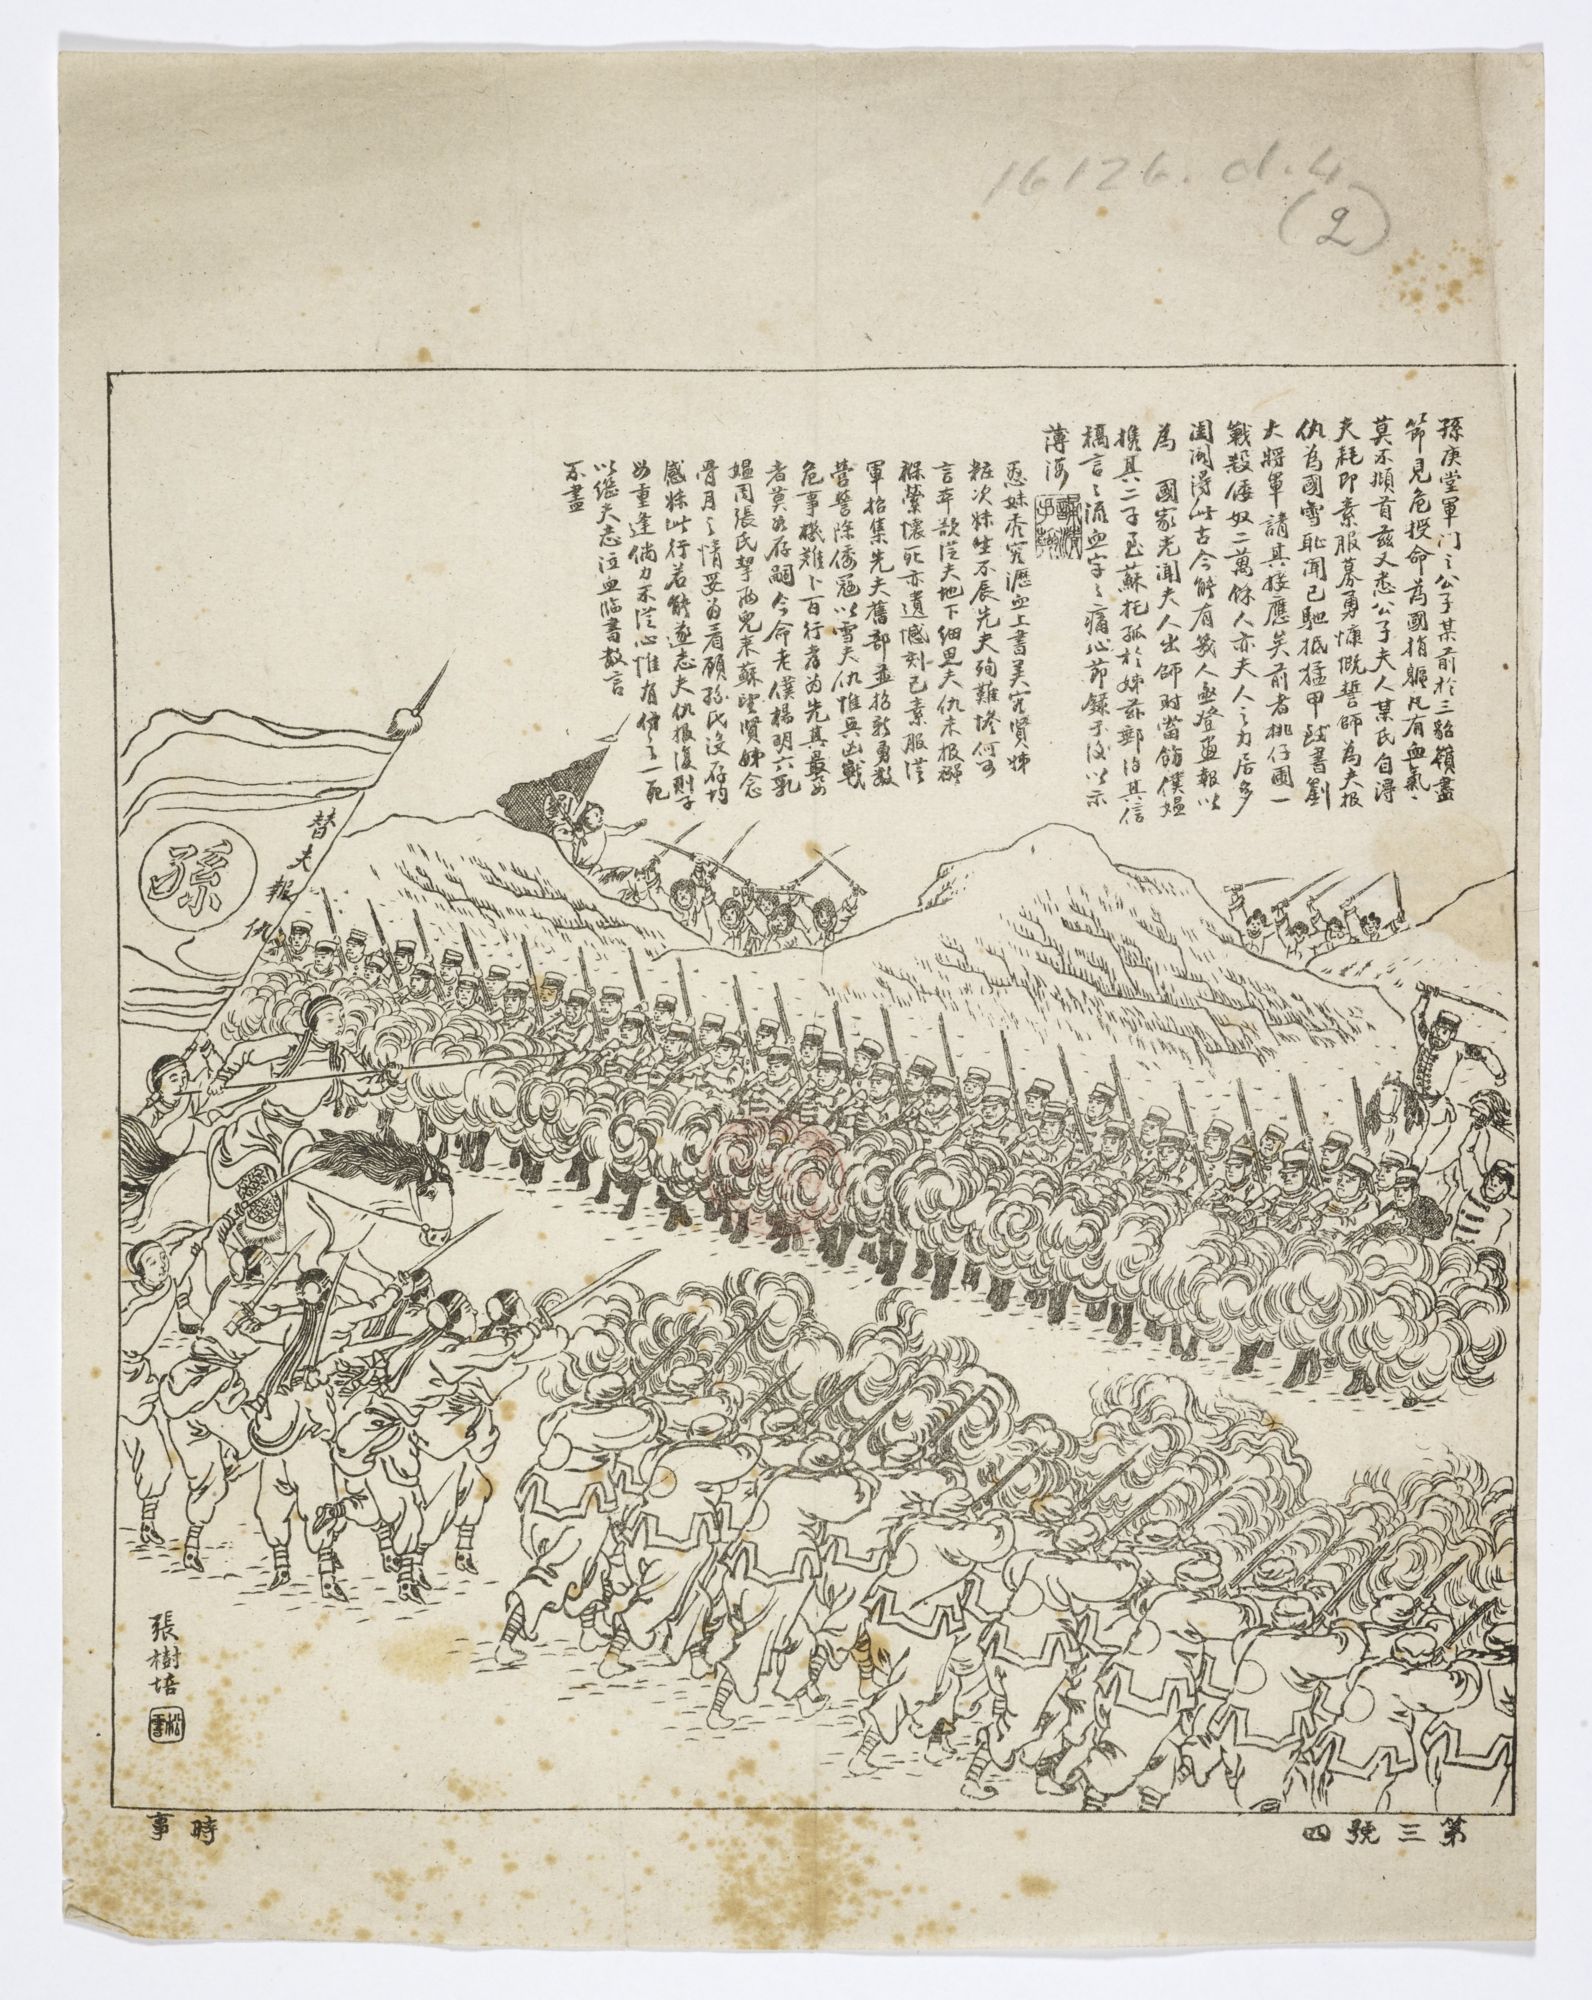 16126.d.4
(2)
孫庚堂軍門之公子某前於三貂嶺盡
節見危授命為國捐軀凡有血氣
莫不頫首茲又悉公子夫人某氏自得
夫耗即素服募勇慷慨誓師為夫報
仇為國雪恥聞已馳抵猛甲致書劉
大將軍請其接應矣前者桃仔園一
戰殺倭奴二萬餘人亦夫人之力居多
閨閣得此古今能有幾人亟登畫報以
為國家光聞夫人出師時當飭僕媼
攜其二子至蘇托孤於姊茲郵治其信
稿言之流血字之痛心節錄于後以示
薄海
愚妹秀容瀝血上書美容賢姊
粧次妹生不辰先夫殉難慘何可
言本欲從夫地下細思夫仇未報襁
褓縈懷死亦遺憾刻已素服從
軍招集先夫舊部並招新勇數
營誓除倭寇以雪夫仇惟兵凶戰
危事機難卜百行孝為先其最要
者莫如存嗣今命老僕楊明六乳
媼周張氏挈兩兒來蘇望賢姊念
骨月之情妥為看顧孫氏沒存均
感妹此行若能遂志夫仇報復則子
母重逢倘力不從心惟有拚之一死
以繼夫志泣血臨書敬言
不盡
劉
替夫報仇
孫
張樹培
松雲
時事
第三號四